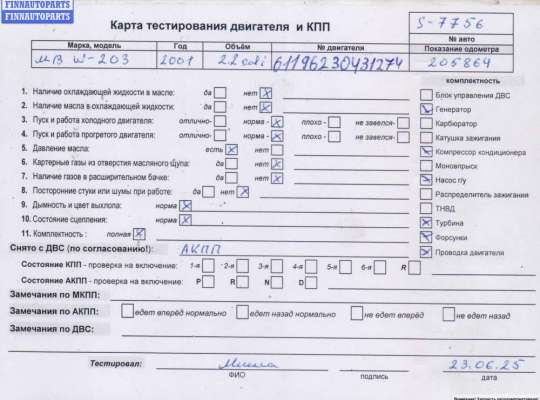 FINNAUTOPARTS
FINNAUTOPARTS
Карта тестирования двигателя и КПП
S-7756
№ авто
Марка, модель Год Объём № двигателя Показание одометра
MB W-203 2001 2.2 cdi 61196230431274 205864
комплектность
1. Наличие охлаждающей жидкости в масле: да нет
2. Наличие масла в охлаждающей жидкости: да нет
3. Пуск и работа холодного двигателя: отлично- норма - плохо - не завелся-
4. Пуск и работа прогретого двигателя: отлично- норма - плохо - не завелся-
5. Давление масла: есть нет
6. Картерные газы из отверстия масляного щупа: да нет
7. Наличие газов в расширительном бачке: да нет
8. Посторонние стуки или шумы при работе: да нет
9. Дымность и цвет выхлопа: норма
10. Состояние сцепления: норма
11. Комплектность : полная
Блок управления ДВС
Генератор
Карбюратор
Катушка зажигания
Компрессор кондиционера
Моновпрыск
Насос г/у
Распределитель зажигания
ТНВД
Турбина
Форсунки
Проводка двигателя
Снято с ДВС (по согласованию!): АКПП
Состояние КПП - проверка на включение: 1-я 2-я 3-я 4-я 5-я 6-я R
Состояние АКПП - проверка на включение: P R N D
Замечания по МКПП:
Замечания по АКПП: едет вперёд нормально едет назад нормально не едет вперед не едет назад
Замечания по ДВС:
Тестировал: 23.06.25
ФИО подпись дата